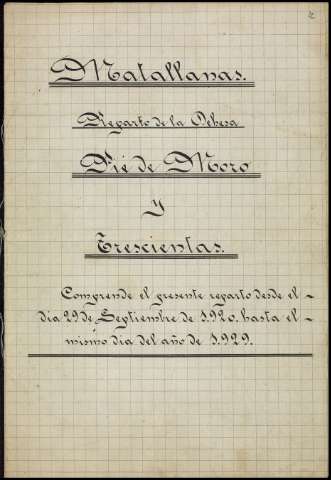 Matallanas.
Reparto de la Dehesa
Pié de Moro
Y
Trescientas.
Comprende el presente reparto desde el
dia 29 de Septiembre de 1.920. hasta el
mismo dia del año de 1.929.